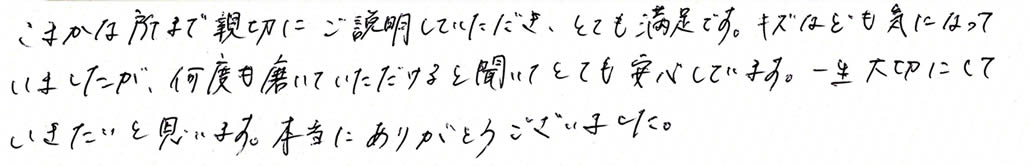 こまかな所まで親切にご説明していただき、とても満足です。キズなども気になって
いましたが、何度も磨いていただけると聞いてとても安心しています。一生大切にして
いきたいと思います。本当にありがとうございました。